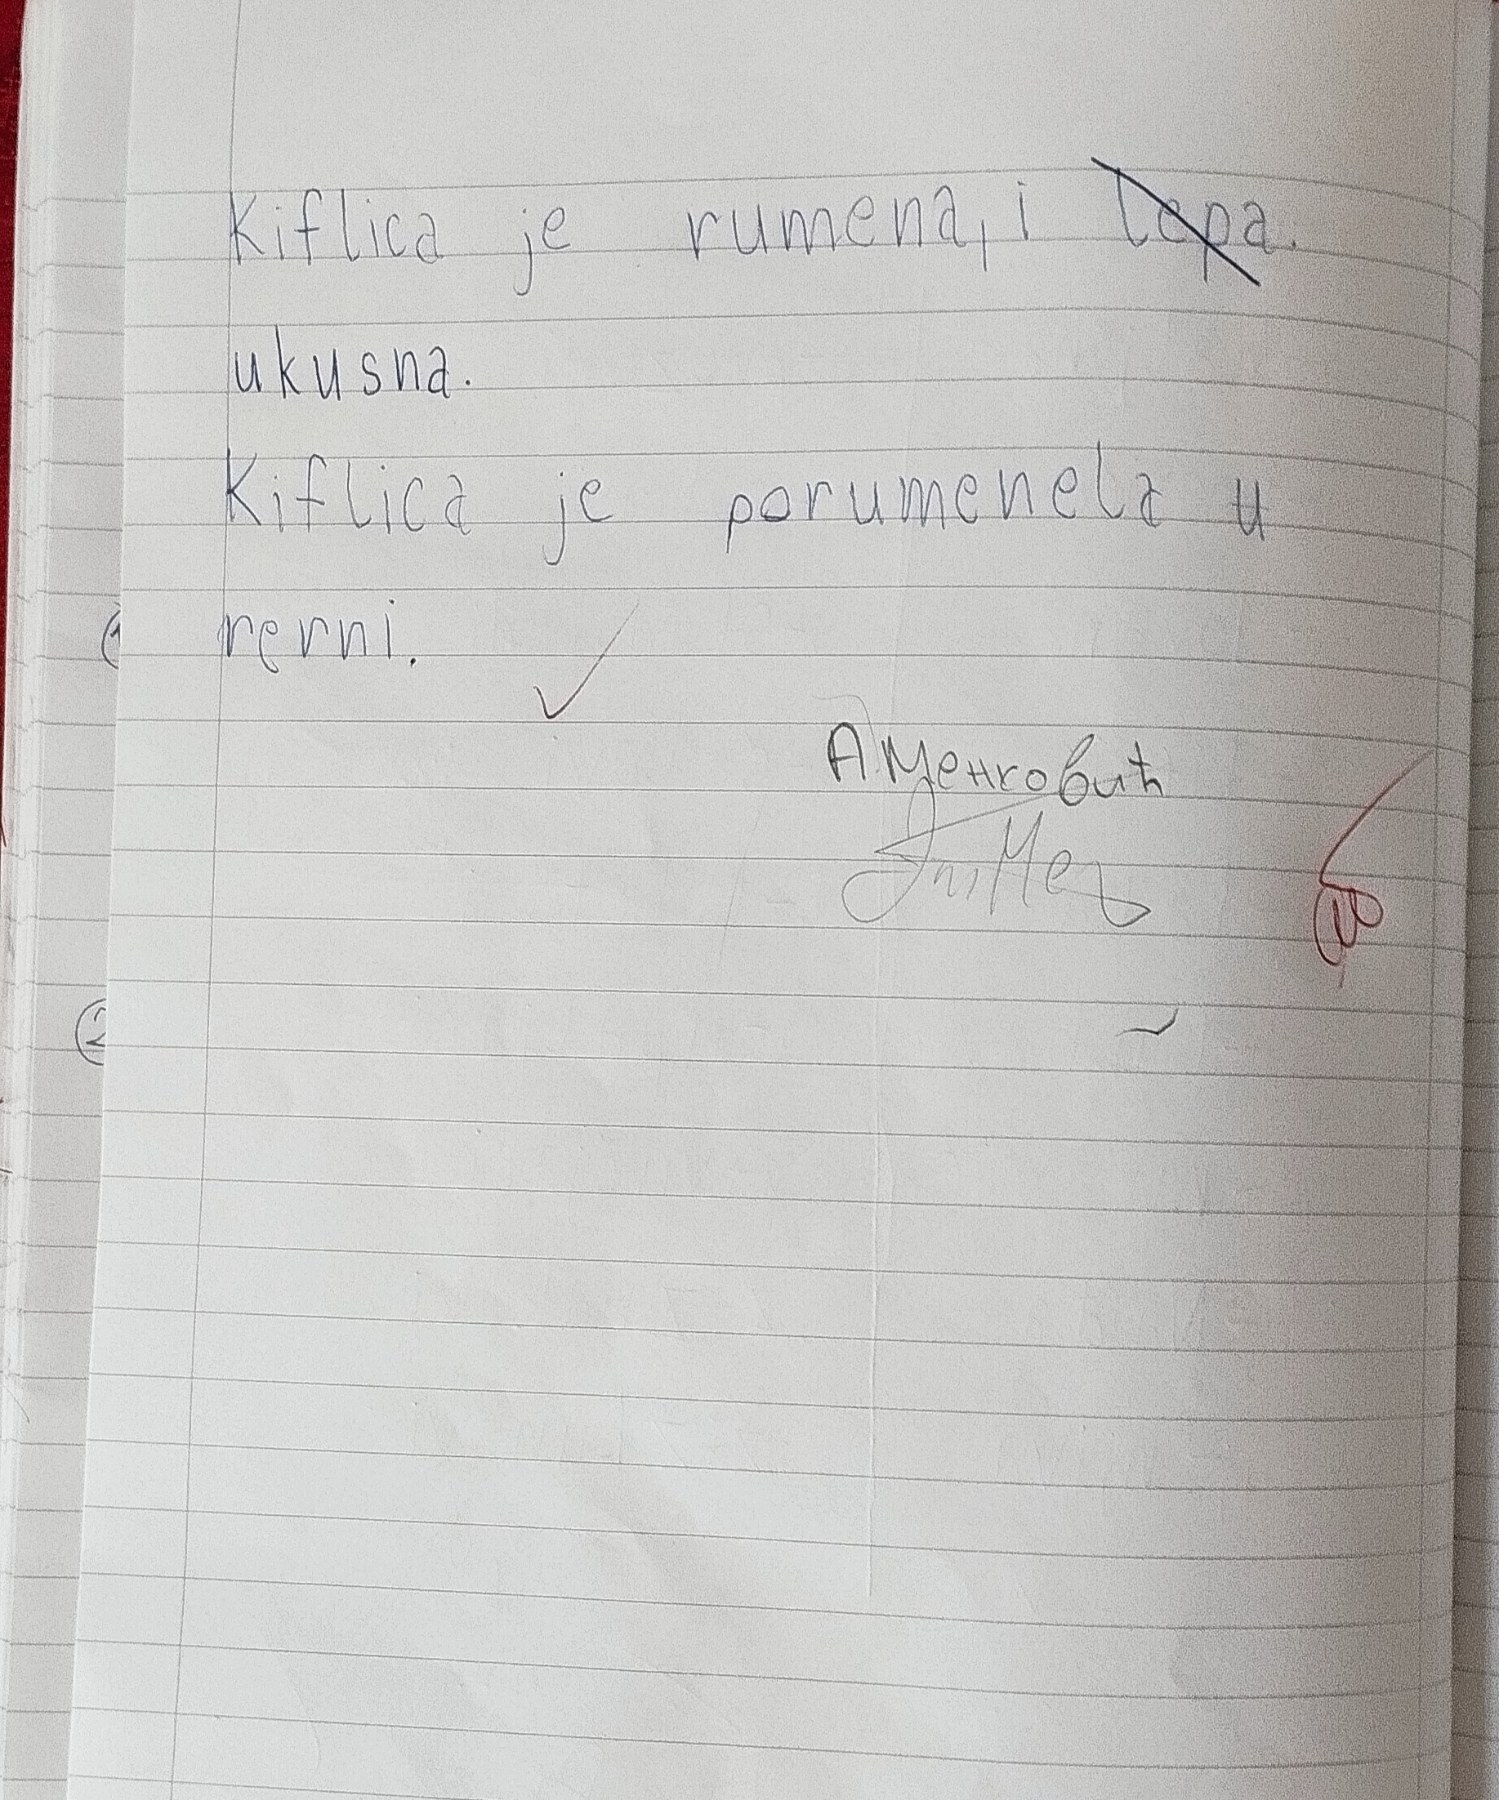 Kiflica je rumena, i lepa.
ukusna.
Kiflica je porumenela u
rerni.
А Менковић
2